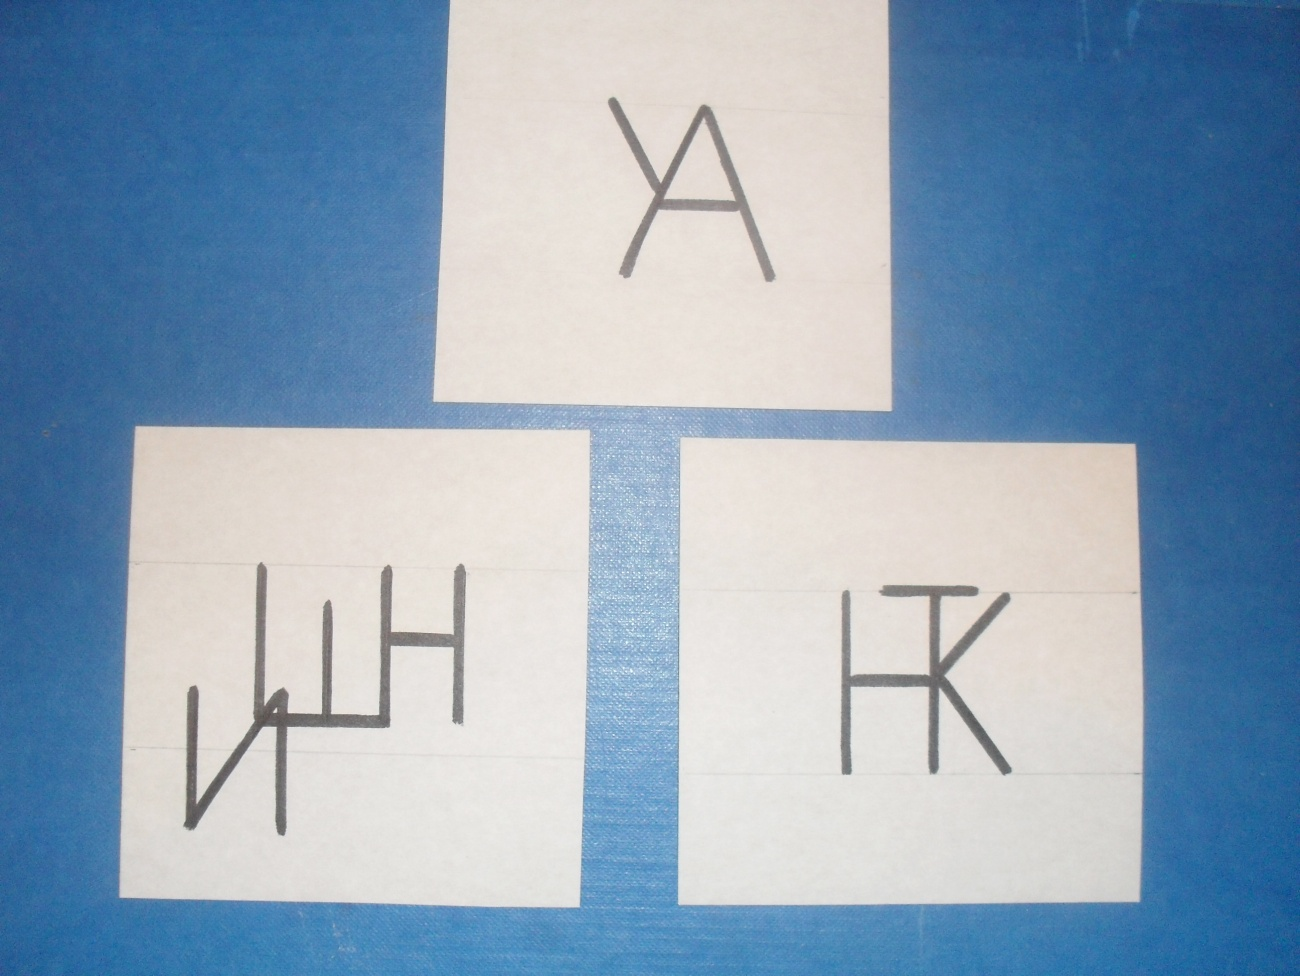 УА
ИШН
НТК